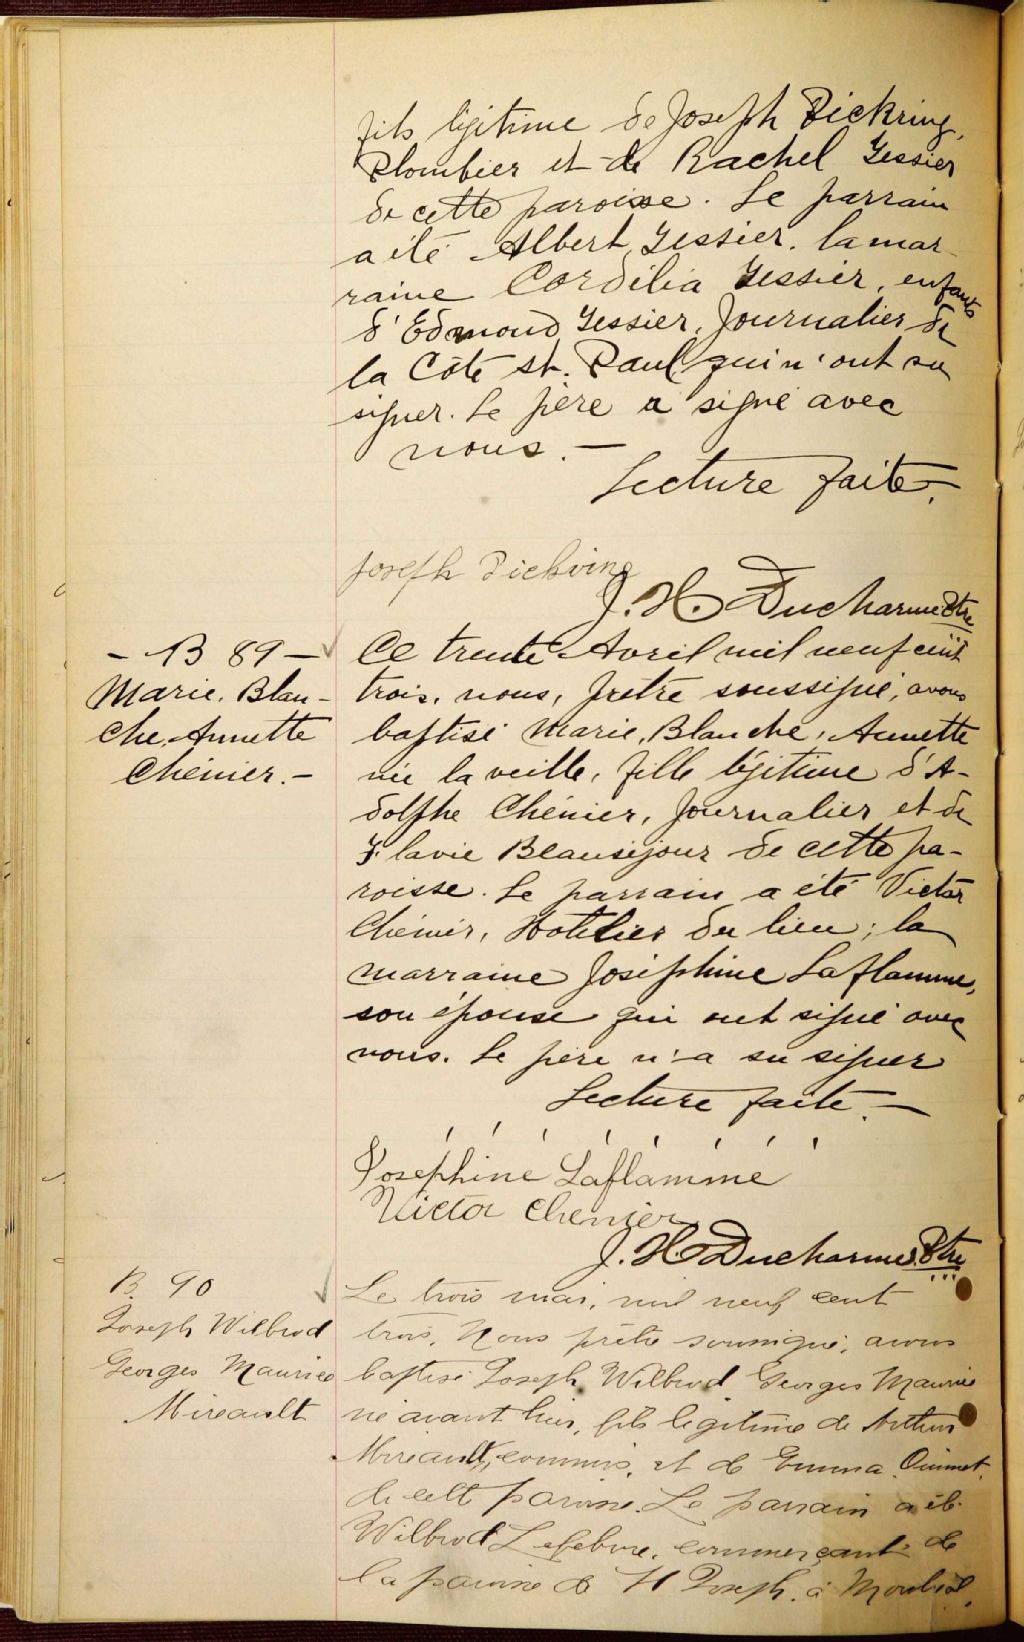 fils légitime de Joseph Pickring,
Plombier et de Rachel Tessier
de cette paroisse. Le parrain
a été Albert Tessier. la mar-
raine Cordélia Tessier, enfants
d'Edmond Tessier, Journalier de
la Côte St. Paul qui n'ont su
signer. Le père a signé avec
nous. —
Lecture faite.
Joseph Pickring
J. H. Ducharme Ptre
- B 89 -
Marie, Blan-
che, Annette
Chénier. -
Ce trente Avril mil neuf cent
trois, nous, prêtre soussigné, avons
baptisé Marie, Blanche, Annette
née la veille, fille légitime d'A-
dolphe Chénier, Journalier et de
Flavie Beauséjour de cette pa-
roisse. Le parrain a été Victor
Chénier, Hôtelier du lieu; la
marraine Joséphine Laflamme,
son épouse qui ont signé avec
nous. Le père n'a su signer
Lecture faite. —
Joséphine Laflamme
Victor Chenier
J. H. Ducharme Ptre
B. 90
Joseph Wilbrod
Georges Maurice
Mireault
Le trois mai, mil neuf cent
trois, Nous prêtre soussigné, avons
baptisé Joseph Wilbrod Georges Maurice
né avant hier, fils légitime de Arthur
Mireault, commis, et de Emma Ouimet
de cette paroisse. Le parrain a été
Wilbrod Lefebvre, commerçant de
la paroisse de St Joseph, à Montréal,